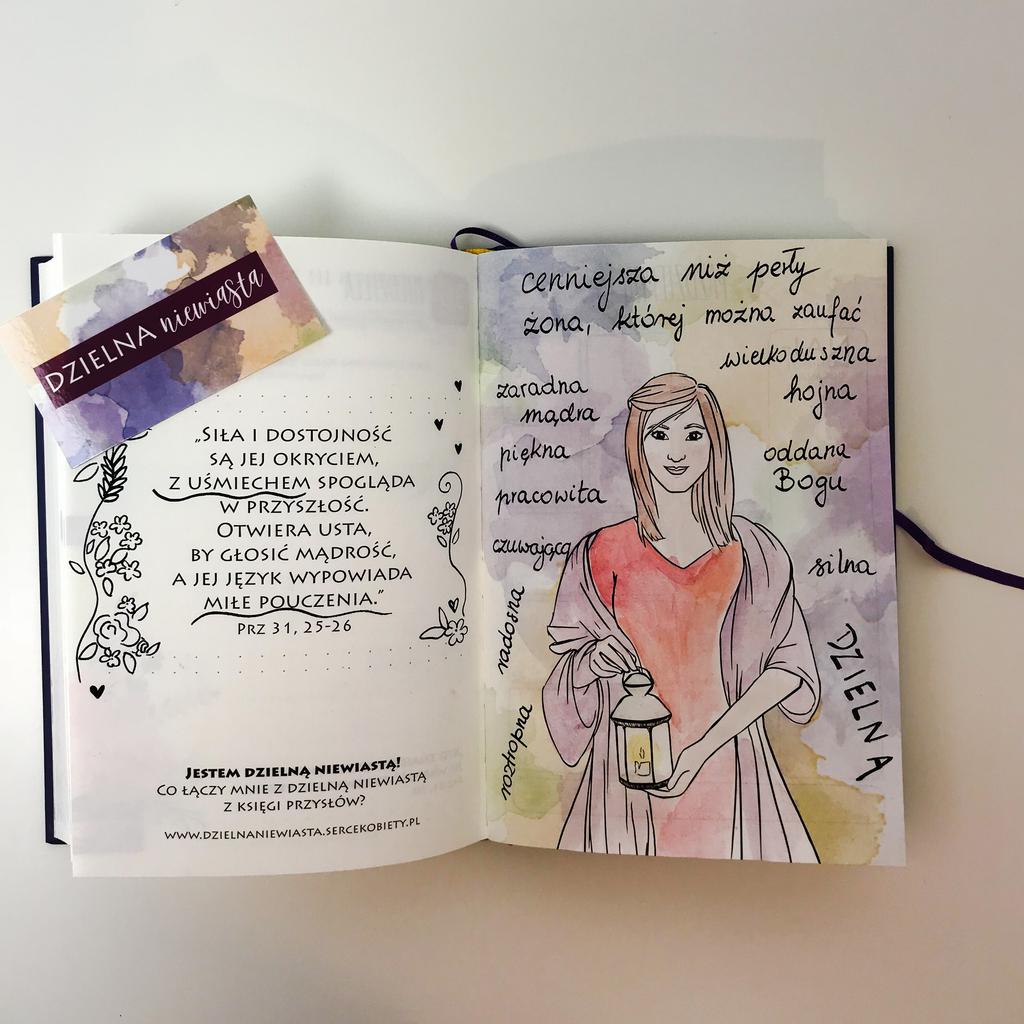 DZIELNA niewiasta
„SIŁA I DOSTOJNOŚĆ
SĄ JEJ OKRYCIEM,
Z UŚMIECHEM SPOGLĄDA
W PRZYSZŁOŚĆ.
OTWIERA USTA,
BY GŁOSIĆ MĄDROŚĆ,
A JEJ JĘZYK WYPOWIADA
MIŁE POUCZENIA."
PRZ 31, 25-26
JESTEM DZIELNĄ NIEWIASTĄ!
CO ŁĄCZY MNIE Z DZIELNĄ NIEWIASTĄ
Z KSIĘGI PRZYSŁÓW?
WWW.DZIELNANIEWIASTA.SERCEKOBIETY.PL
cenniejsza niż perły
żona, której można zaufać
wielkoduszna
hojna
zaradna
mądra
piękna
pracowita
czuwająca
oddana
Bogu
silna
radosna
roztropna
DZIELNA